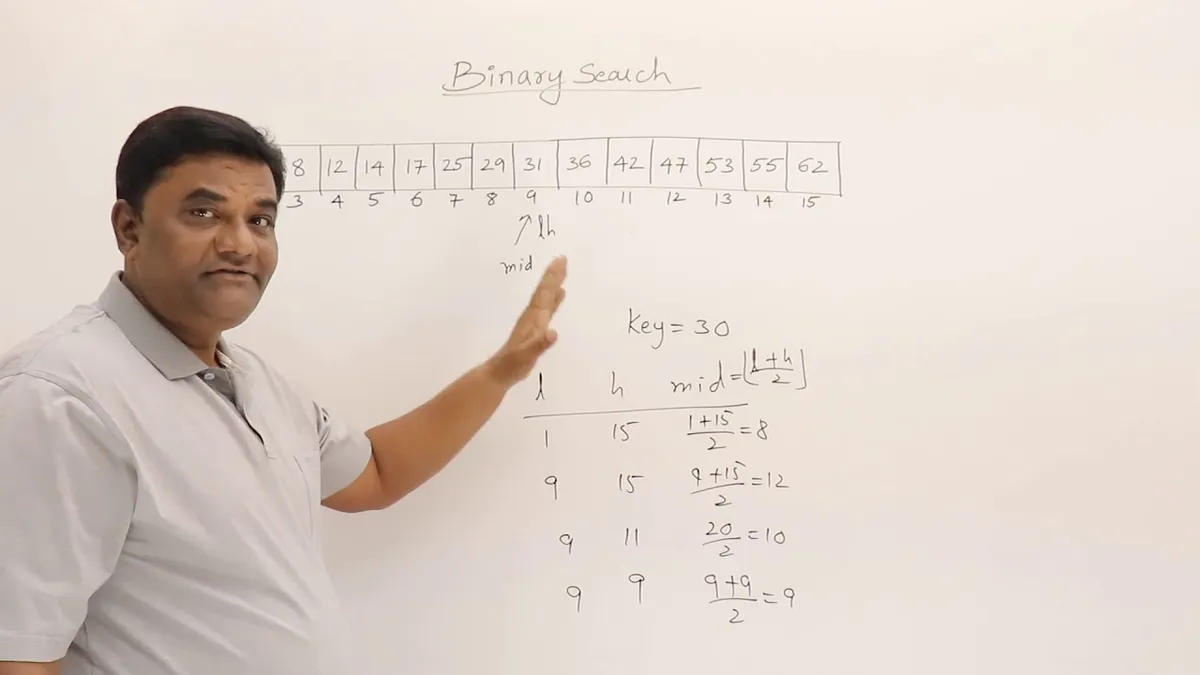 Binary Search
8 12 14 17 25 29 31 36 42 47 53 55 62
3 4 5 6 7 8 9 10 11 12 13 14 15
↑ lh
mid
key = 30
l h mid = ⌊(l+h)/2⌋
1 15 (1+15)/2 = 8
9 15 (9+15)/2 = 12
9 11 20/2 = 10
9 9 (9+9)/2 = 9